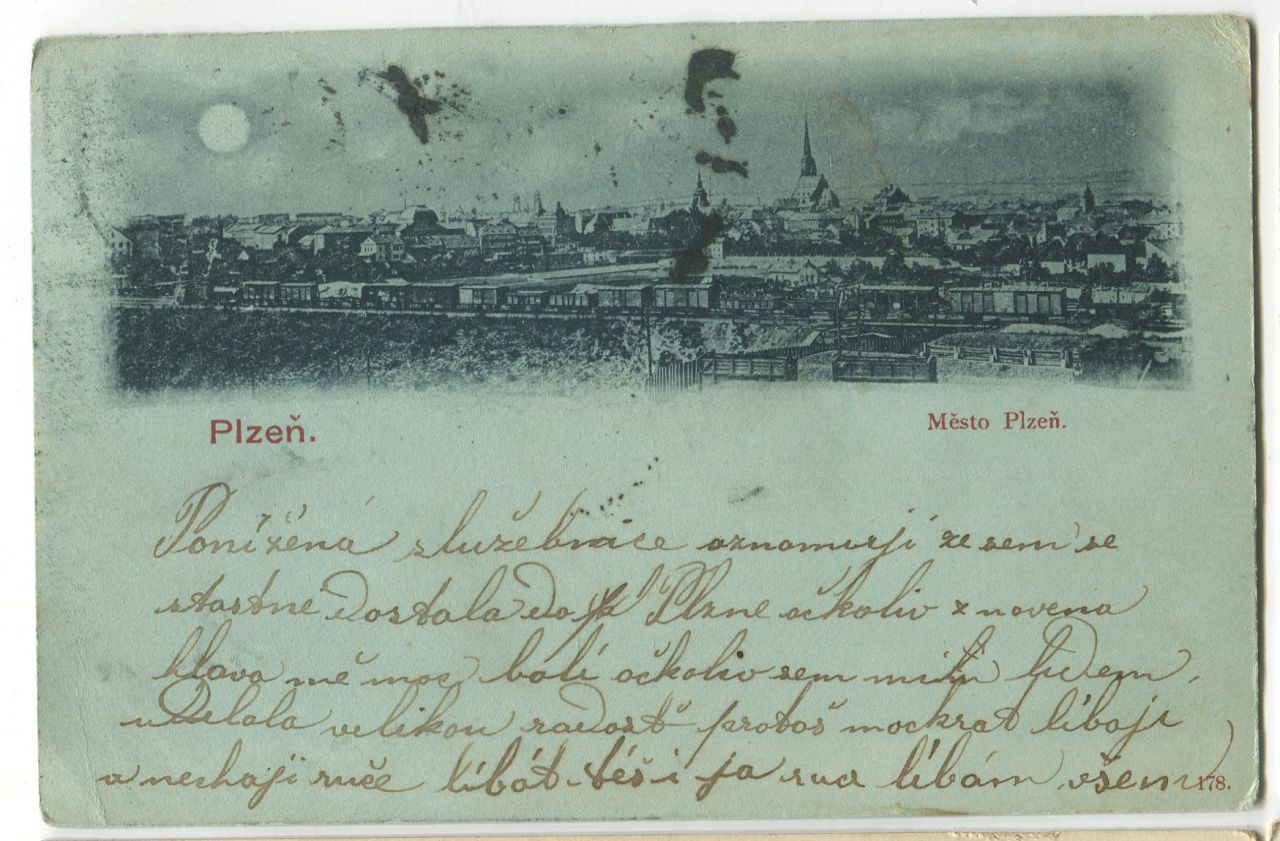 Plzeň.
Město Plzeň.
Ponížená služebnice oznamuji ze sem se
stastně dostala do Plzne ačkoliv znovena
hlava mě moc bolí ačkoliv sem lidem
udelala velikou radost protoš mockrat líbaji
a nechaji ruče líbát téš i ja ruce líbám všem
178.